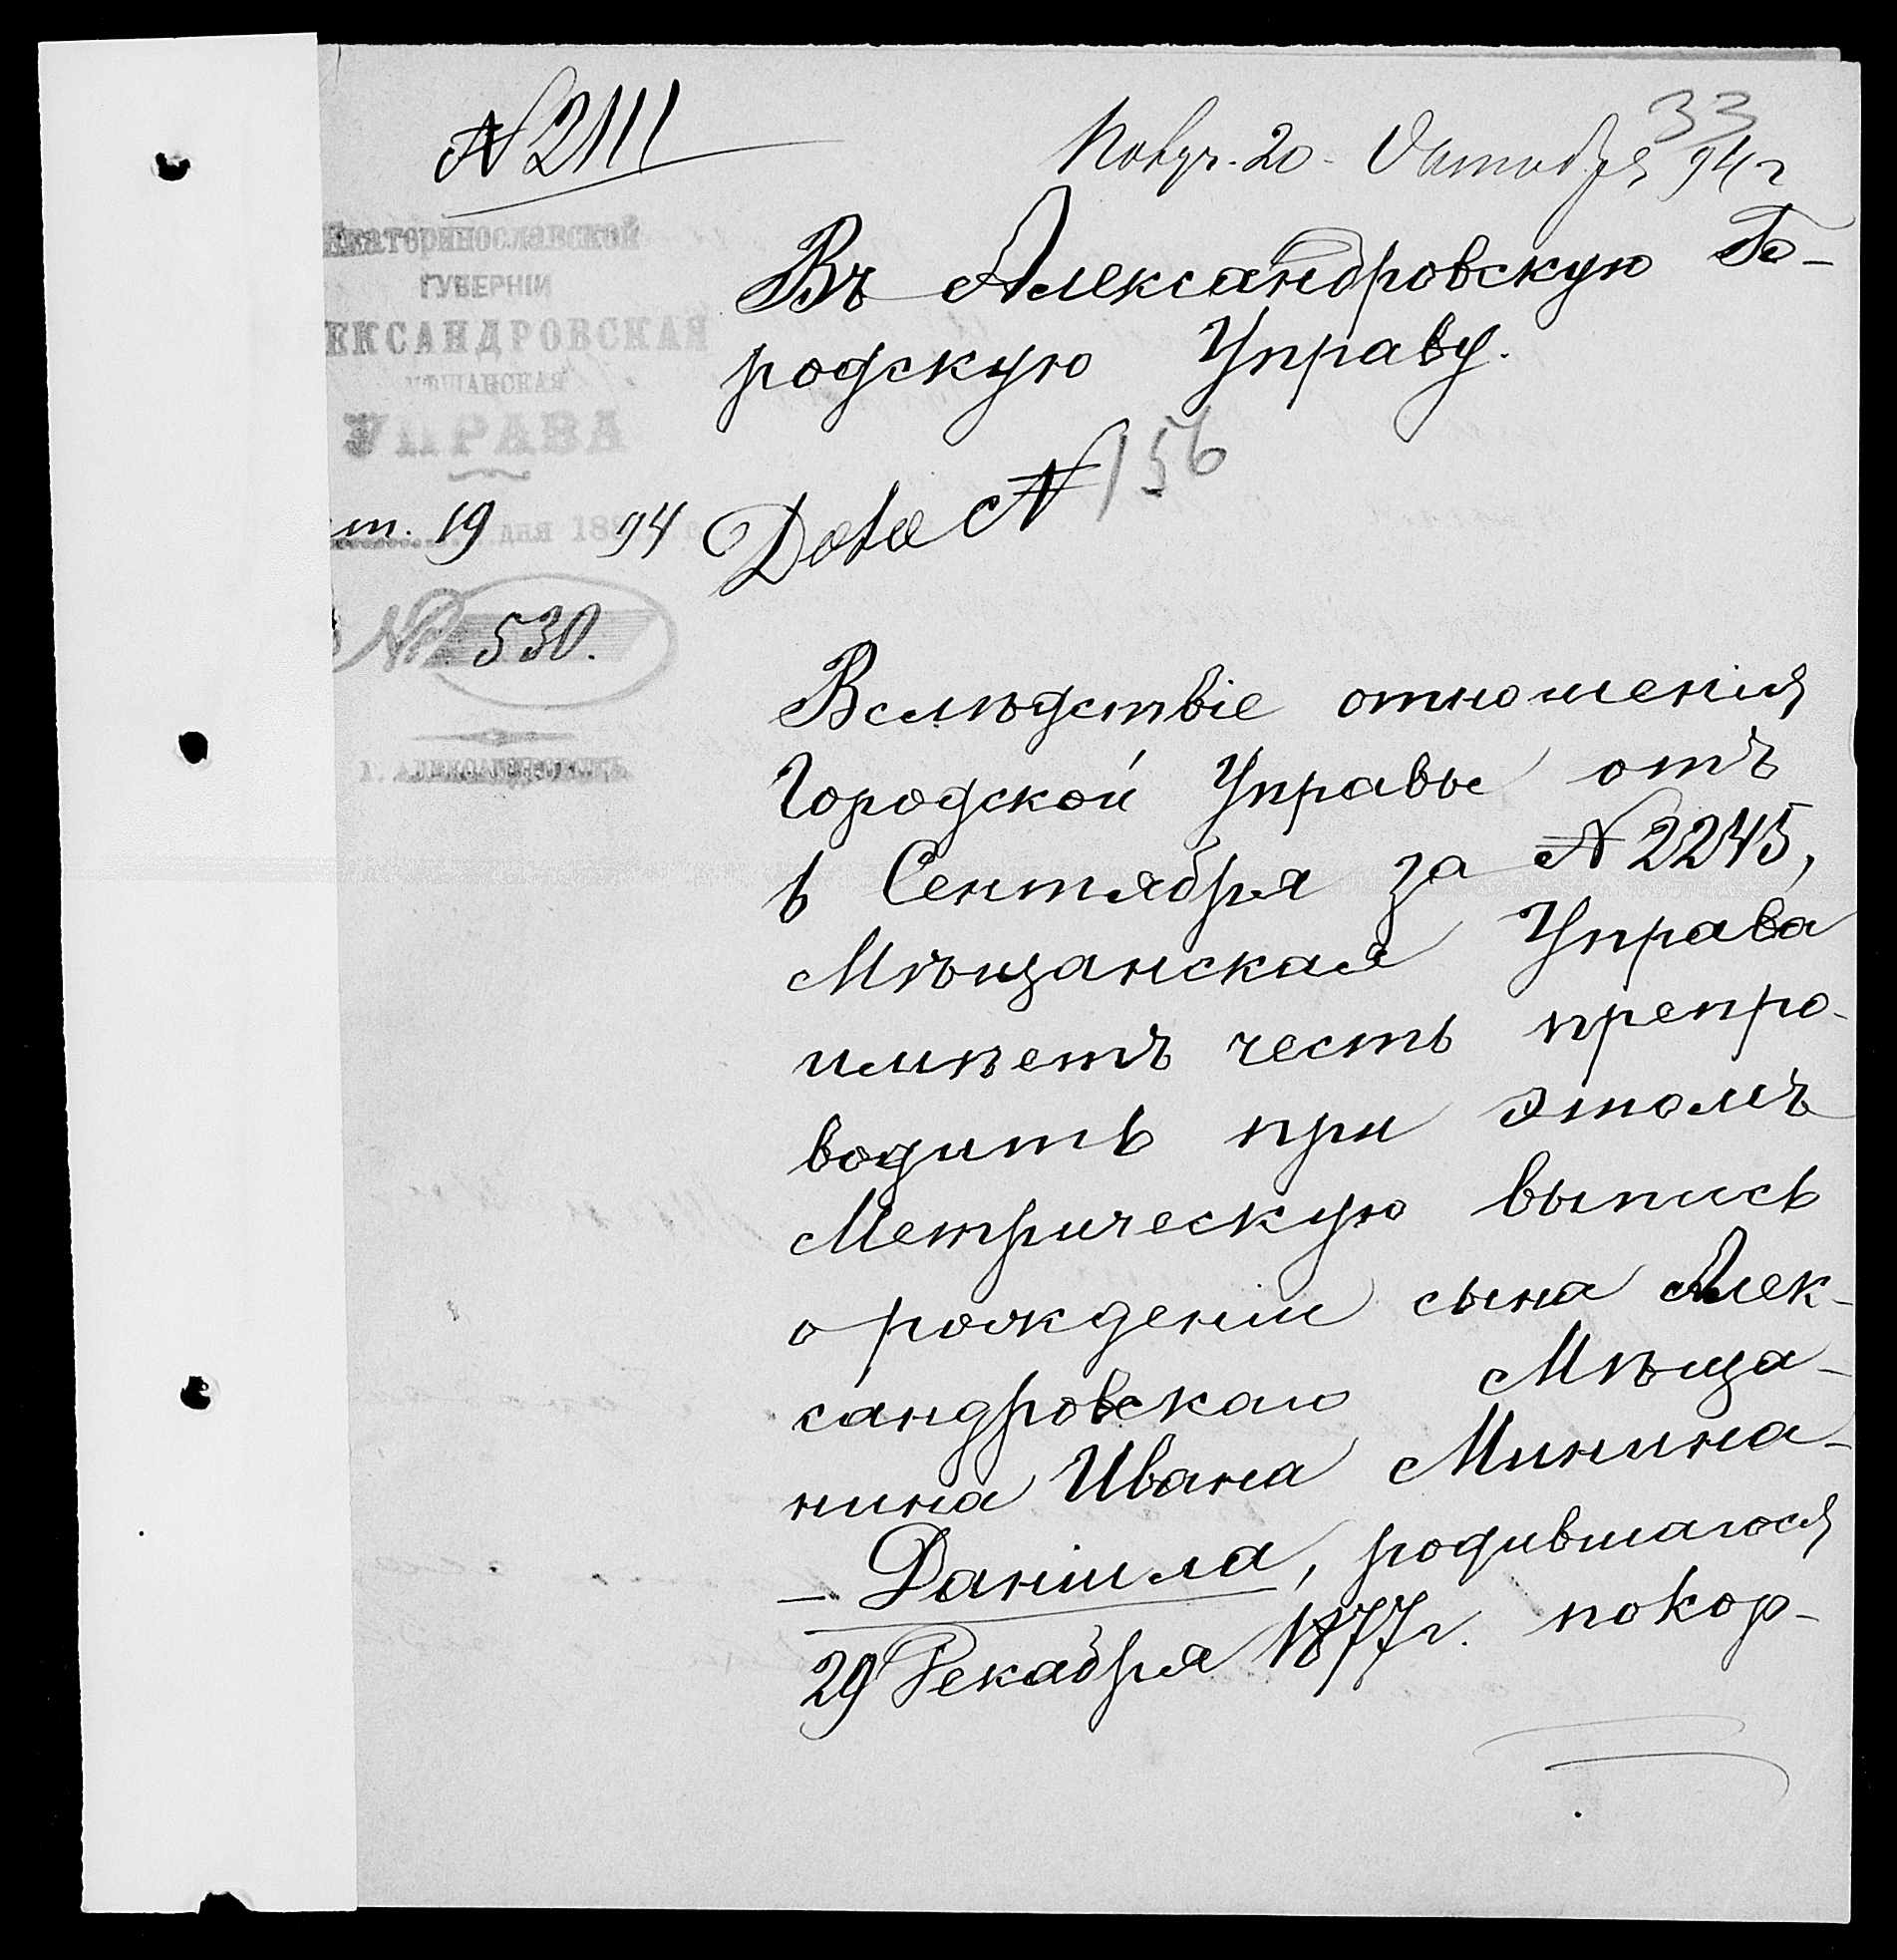 № 2111
33
Получ. 20 Октября 94 г
Екатеринославской
ГУБЕРНІИ
ЕКСАНДРОВСКАЯ
МѢЩАНСКАЯ
УПРАВА
т. 19 дня 189 94
№ 530.
г. АЛЕКСАНДРОВСКЪ
Въ Александровскую Го-
родскую Управу.
Дѣло № 156
Вслѣдствіе отношенія
Городской Управы отъ
6 Сентября за № 2245,
Мѣщанская Управа
имѣетъ честь препро-
водить при этомъ
Метрическую выпись
о рожденіи сына Алек-
сандровскаго Мѣща-
нина Ивана Минина-
– Даніила, родившагося
29 Декабря 1877 г. покор-